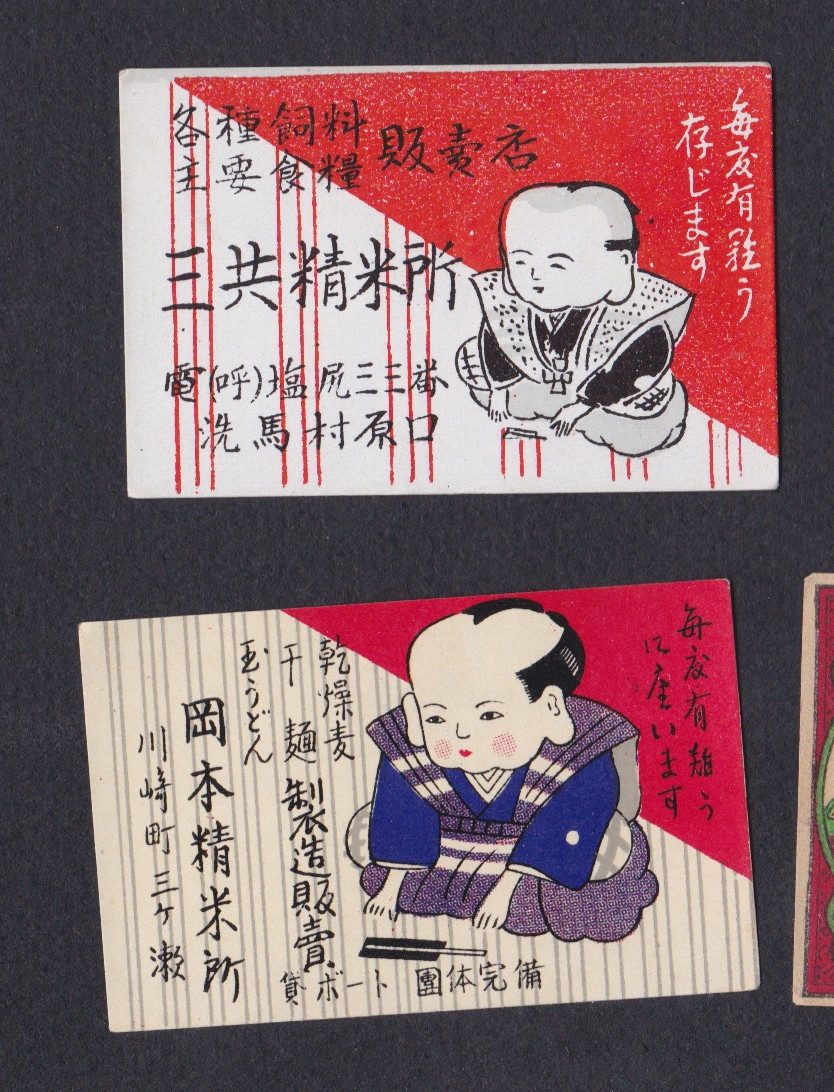 毎度有難う
存じます
各種飼料
主要食糧
販賣店
三共精米所
電(呼)塩尻三三番
洗馬村原口
毎度有難う
御座います
乾燥麦
干麺
玉うどん
製造販賣
岡本精米所
川崎町三ケ瀬
貸ボート 團体完備